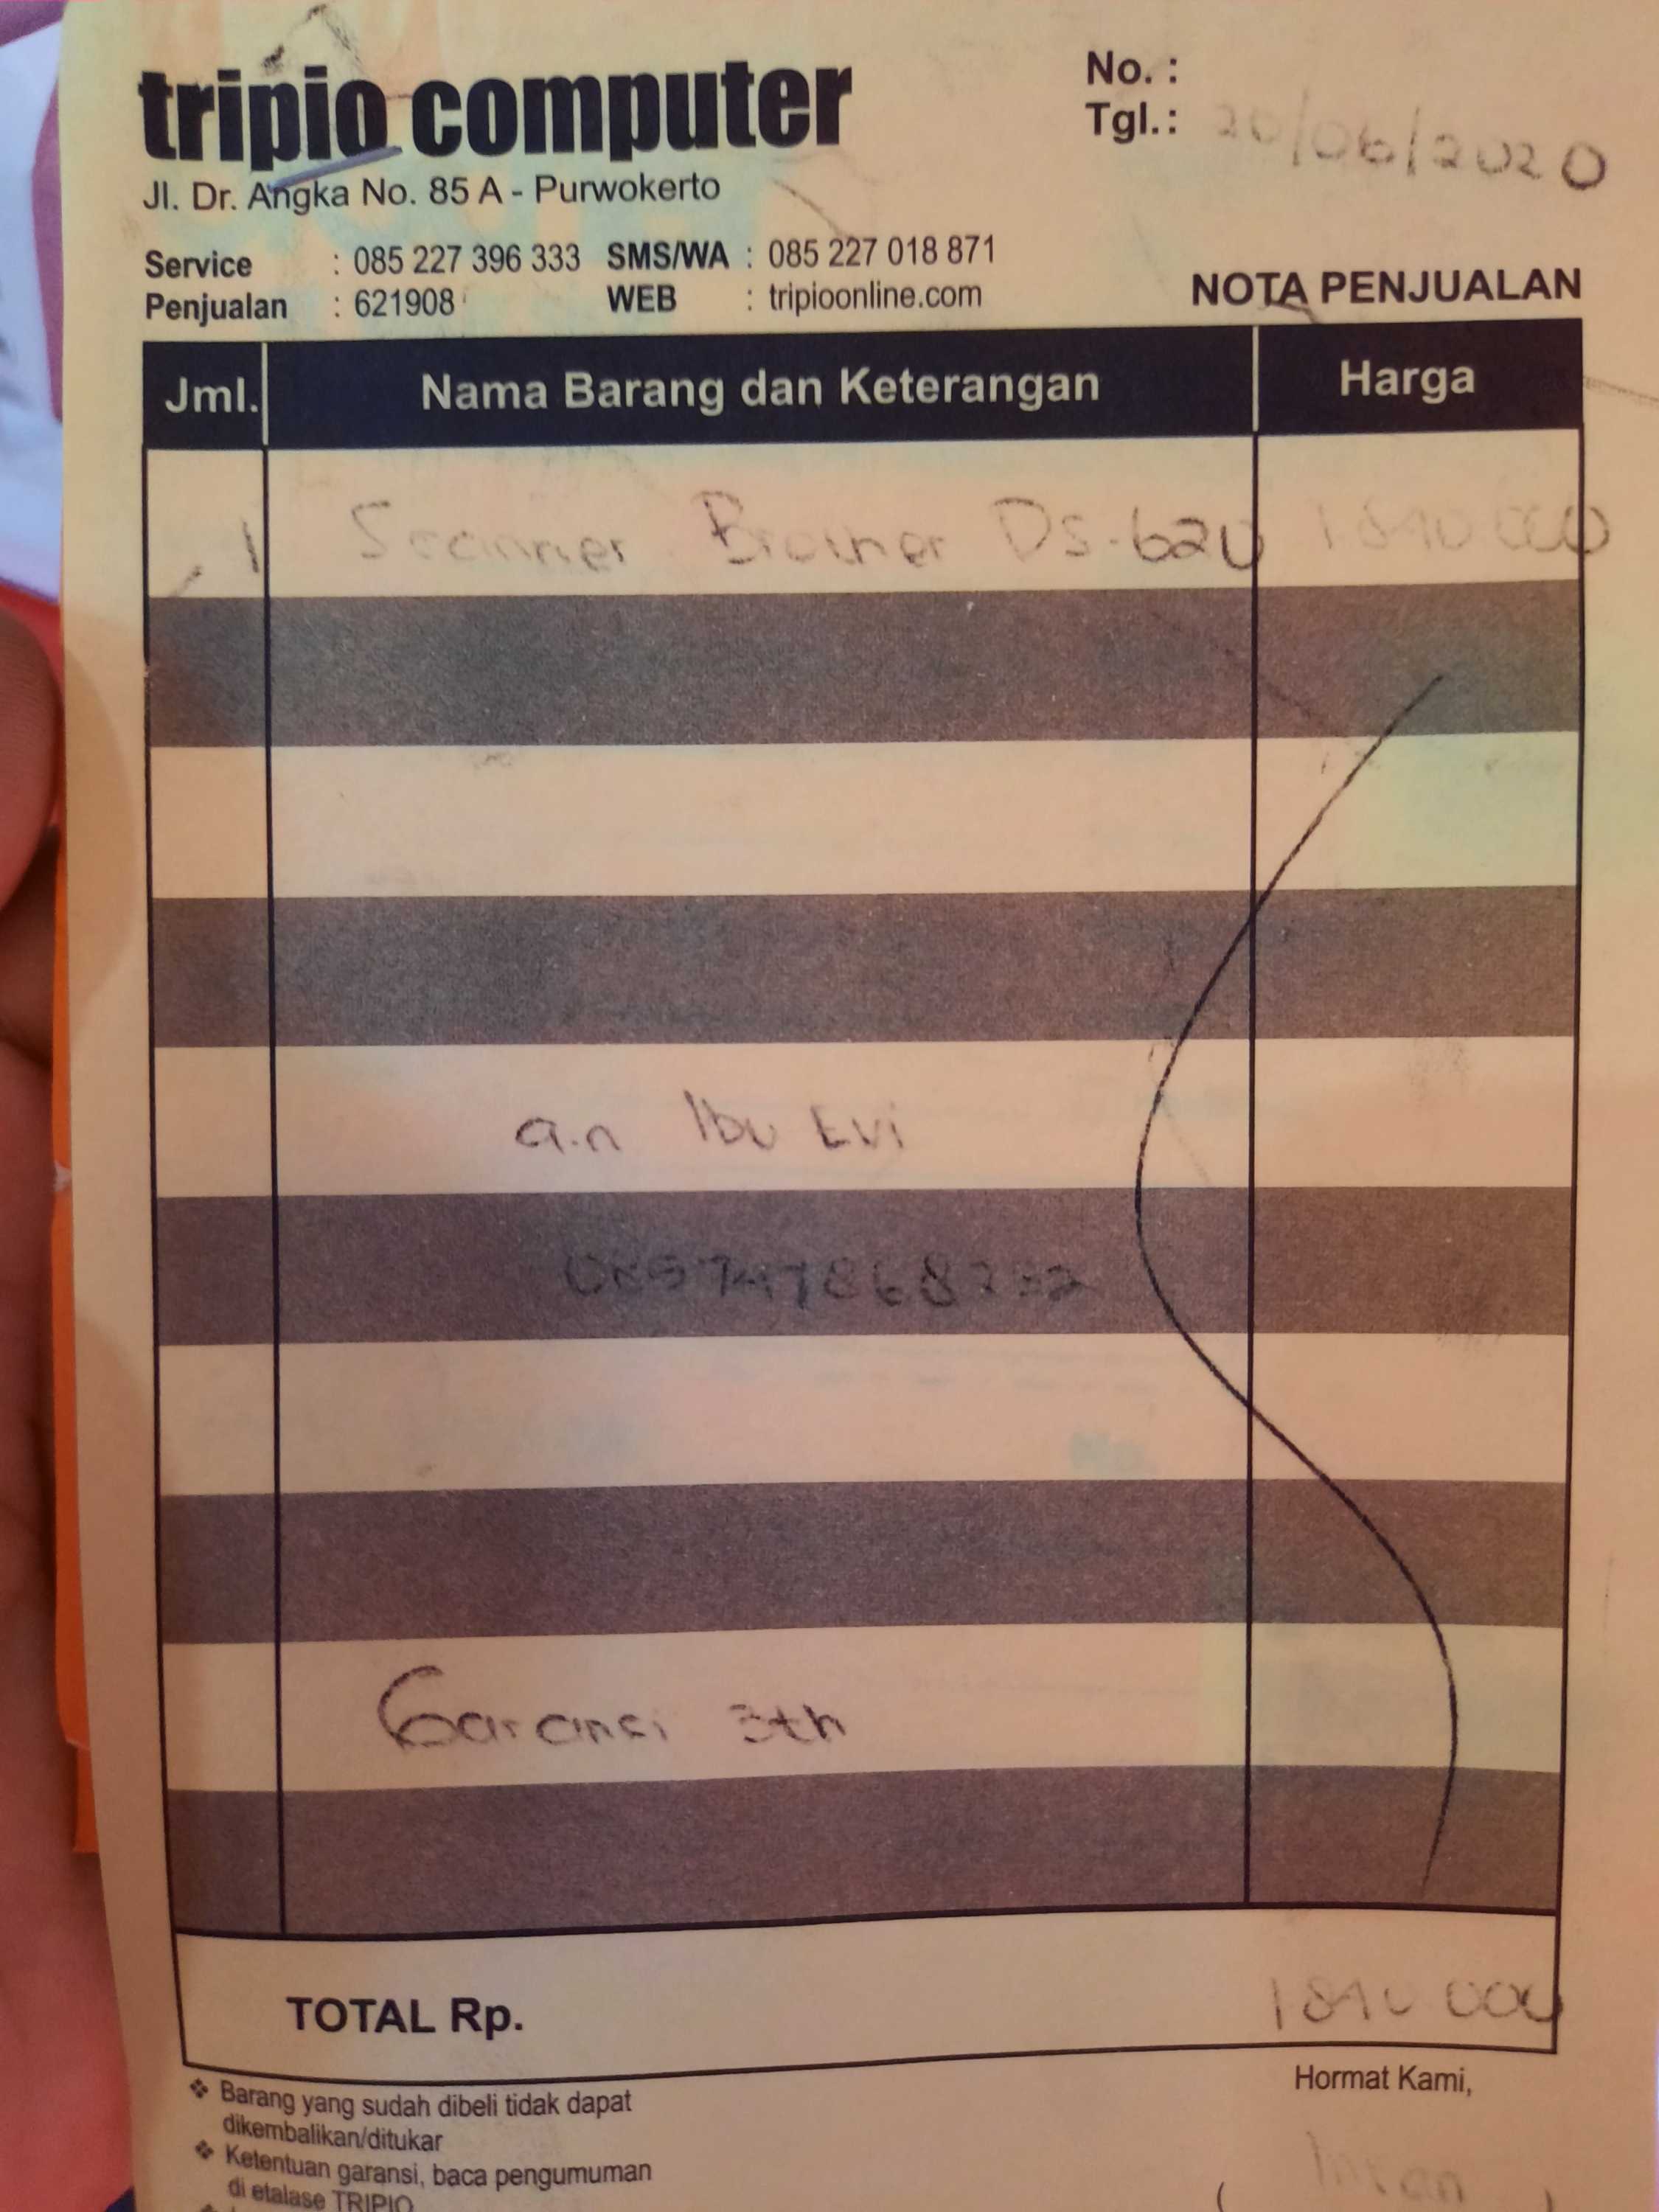 tripio computer
Jl. Dr. Angka No. 85 A - Purwokerto
Service : 085 227 396 333 SMS/WA : 085 227 018 871
Penjualan : 621908 WEB : tripioonline.com
No. :
Tgl. : 20/06/2020
NOTA PENJUALAN
Jml. Nama Barang dan Keterangan Harga
1 Scanner Brother DS-620 1840 000
a.n Ibu Evi
Garansi 3th
TOTAL Rp. 1840 000
❖ Barang yang sudah dibeli tidak dapat
dikembalikan/ditukar
❖ Ketentuan garansi, baca pengumuman
di etalase TRIPIO
Hormat Kami,
Intan